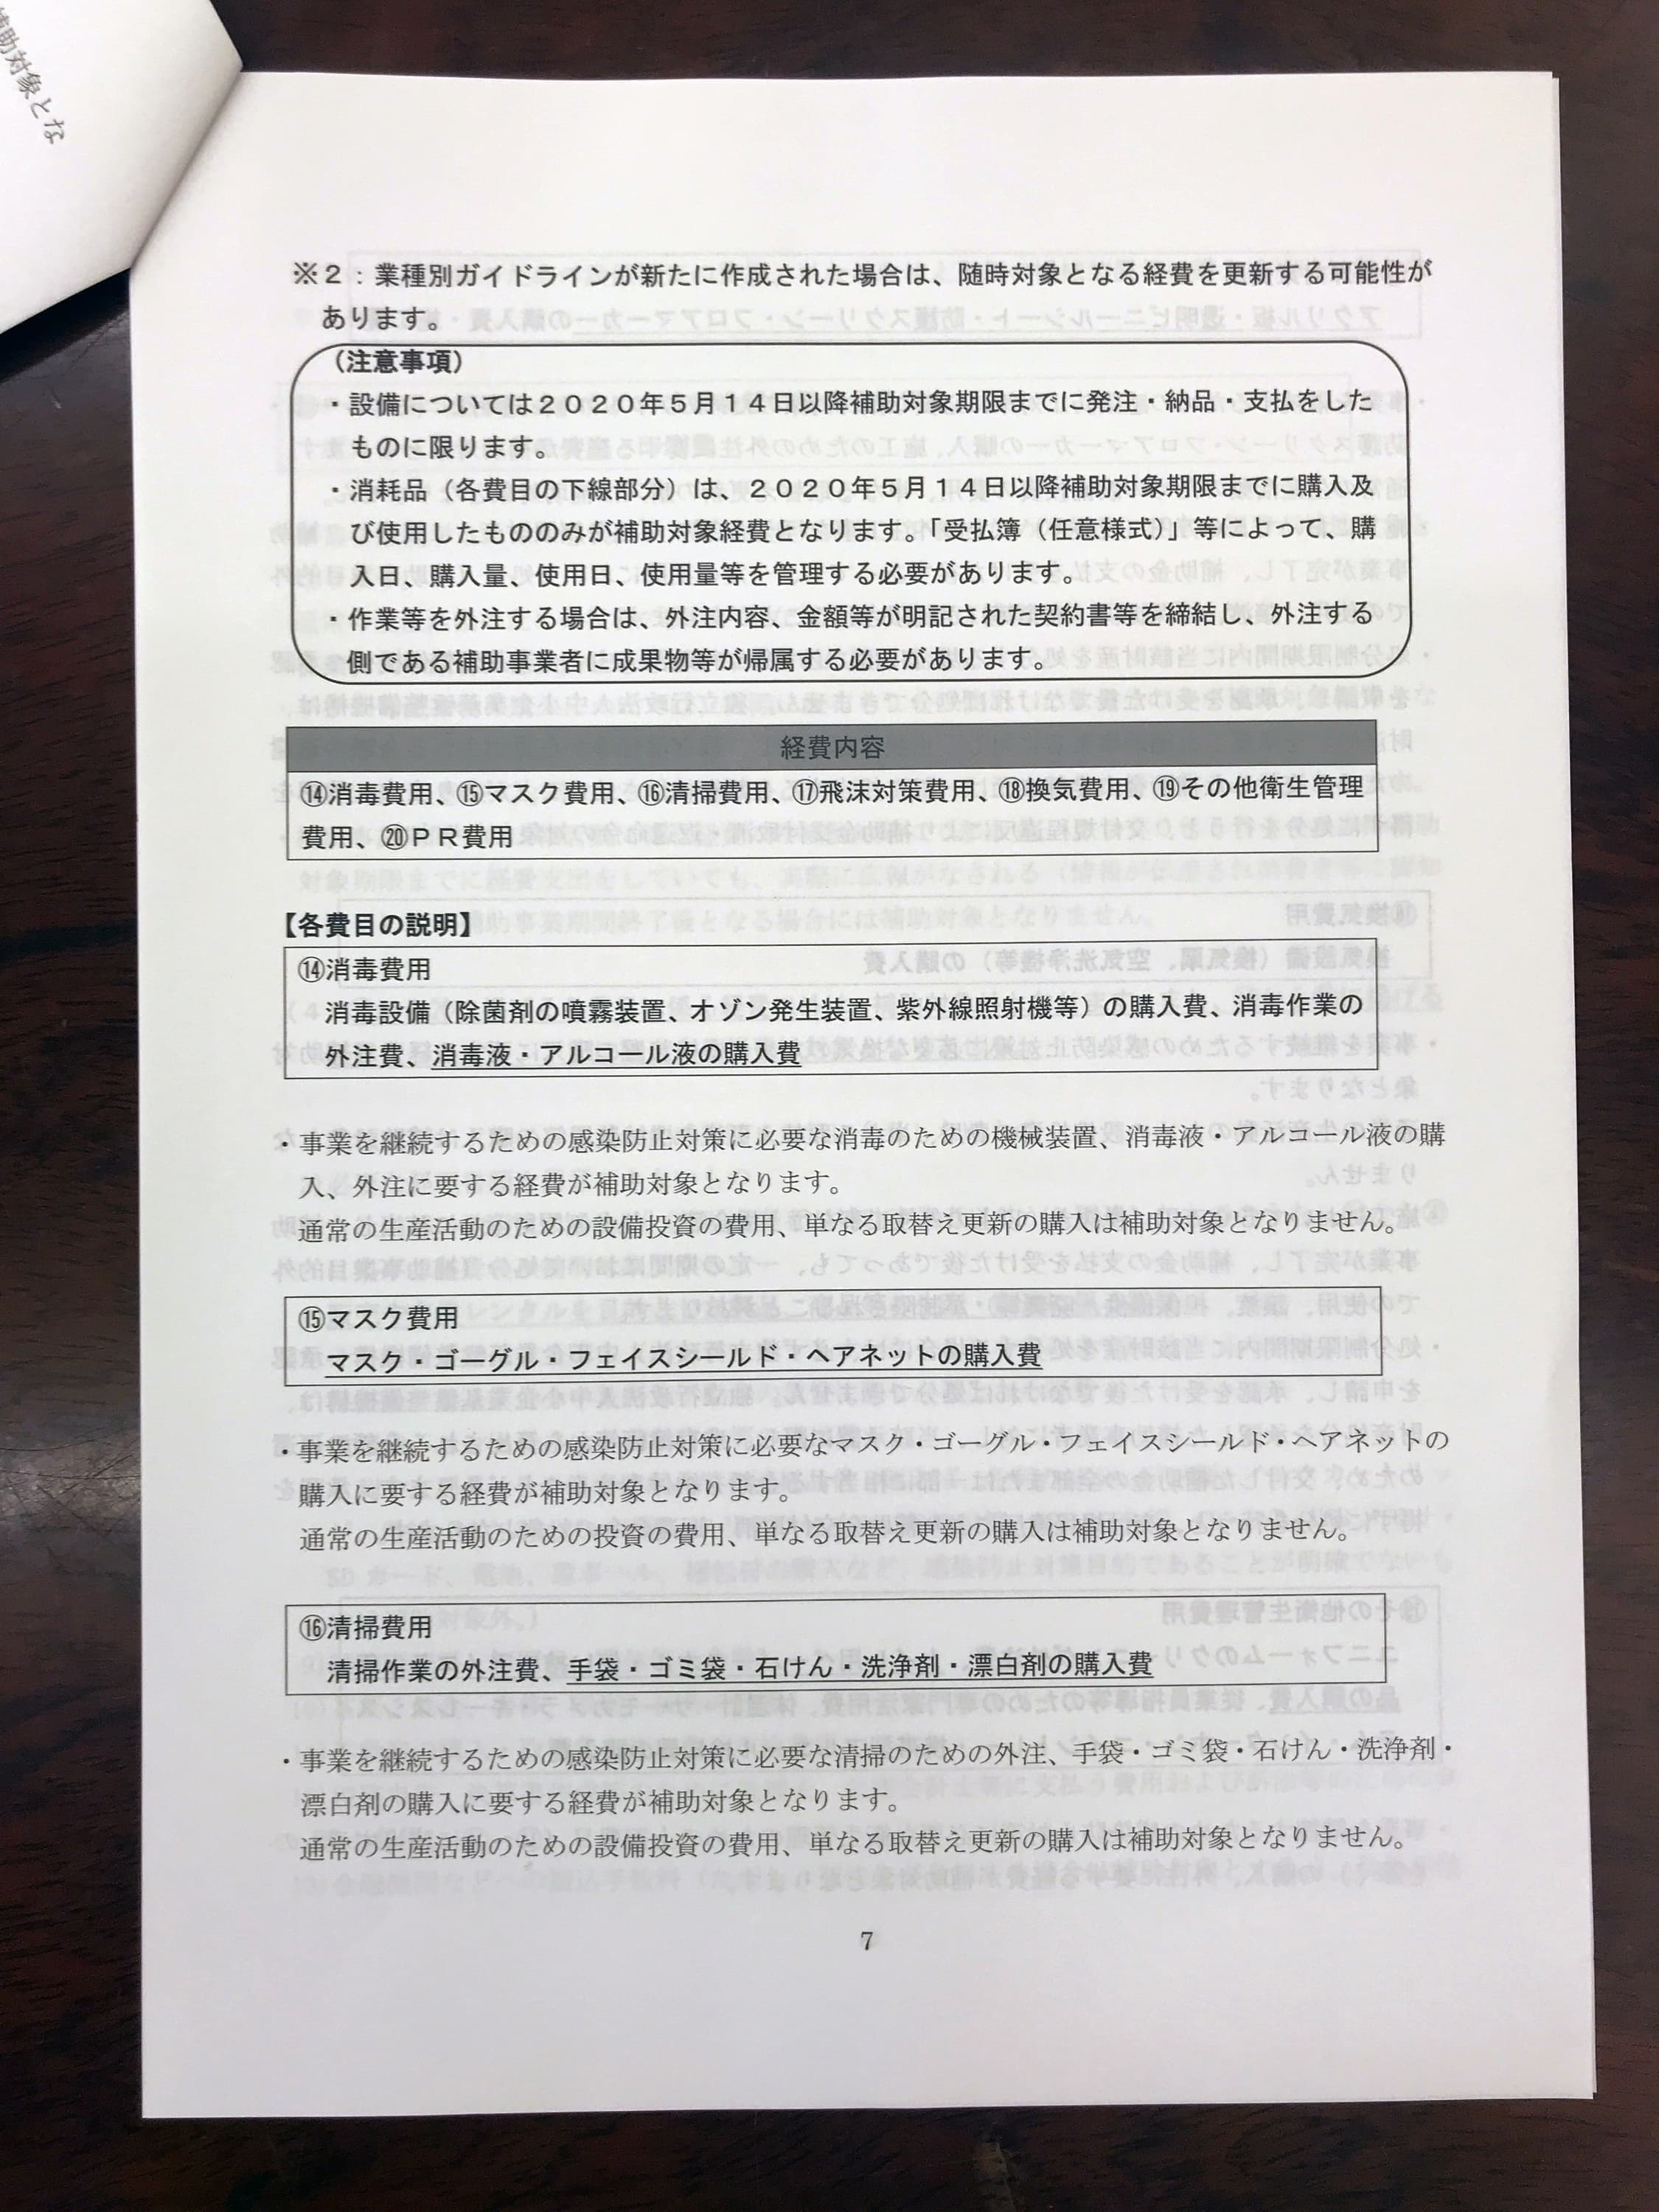 補助対象とな
※２：業種別ガイドラインが新たに作成された場合は、随時対象となる経費を更新する可能性が
あります。
（注意事項）
・設備については２０２０年５月１４日以降補助対象期限までに発注・納品・支払をした
ものに限ります。
・消耗品（各費目の下線部分）は、２０２０年５月１４日以降補助対象期限までに購入及
び使用したもののみが補助対象経費となります。「受払簿（任意様式）」等によって、購
入日、購入量、使用日、使用量等を管理する必要があります。
・作業等を外注する場合は、外注内容、金額等が明記された契約書等を締結し、外注する
側である補助事業者に成果物等が帰属する必要があります。
経費内容
⑭消毒費用、⑮マスク費用、⑯清掃費用、⑰飛沫対策費用、⑱換気費用、⑲その他衛生管理
費用、⑳ＰＲ費用
【各費目の説明】
⑭消毒費用
消毒設備（除菌剤の噴霧装置、オゾン発生装置、紫外線照射機等）の購入費、消毒作業の
外注費、消毒液・アルコール液の購入費
・事業を継続するための感染防止対策に必要な消毒のための機械装置、消毒液・アルコール液の購
入、外注に要する経費が補助対象となります。
通常の生産活動のための設備投資の費用、単なる取替え更新の購入は補助対象となりません。
⑮マスク費用
マスク・ゴーグル・フェイスシールド・ヘアネットの購入費
・事業を継続するための感染防止対策に必要なマスク・ゴーグル・フェイスシールド・ヘアネットの
購入に要する経費が補助対象となります。
通常の生産活動のための投資の費用、単なる取替え更新の購入は補助対象となりません。
⑯清掃費用
清掃作業の外注費、手袋・ゴミ袋・石けん・洗浄剤・漂白剤の購入費
・事業を継続するための感染防止対策に必要な清掃のための外注、手袋・ゴミ袋・石けん・洗浄剤・
漂白剤の購入に要する経費が補助対象となります。
通常の生産活動のための設備投資の費用、単なる取替え更新の購入は補助対象となりません。
7